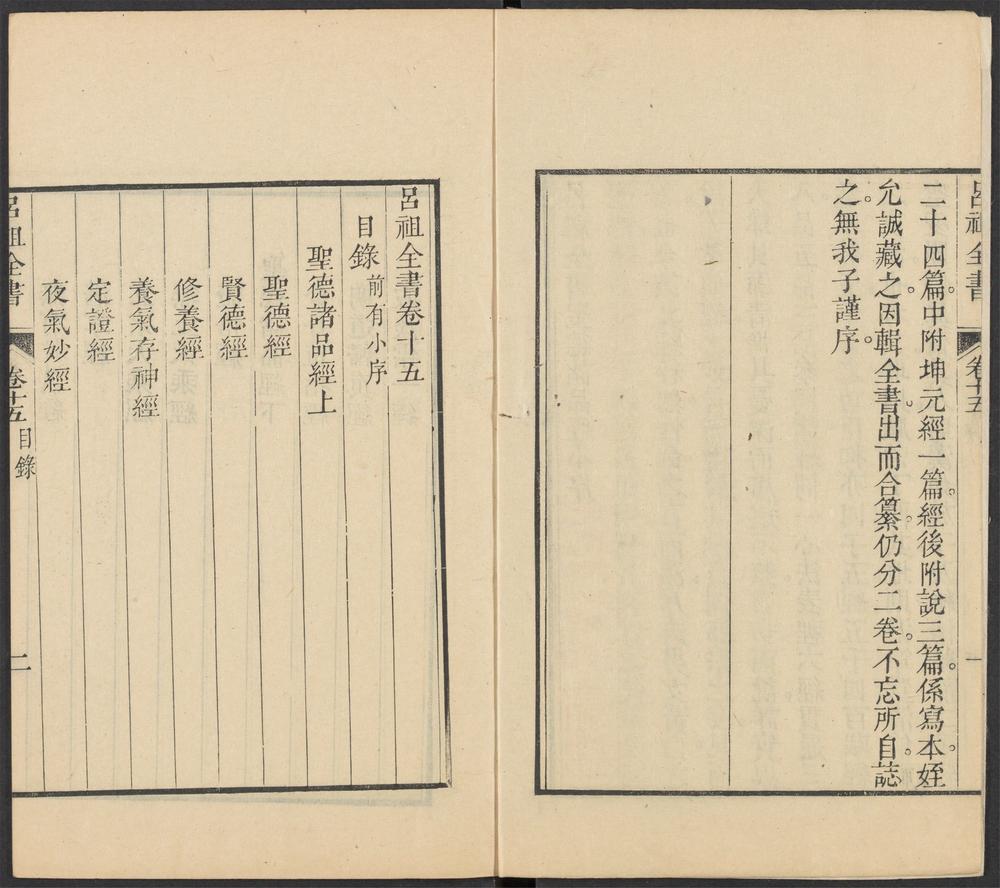 呂祖全書 卷十五 一
二十四篇中附坤元經一篇。經後附說三篇。係寫本。姪
允誠藏之。因輯全書出而合纂。仍分二卷。不忘所自。誌
之。無我子謹序。
呂祖全書卷十五
目錄 前有小序
聖德諸品經上
聖德經
賢德經
修養經
養氣存神經
定證經
夜氣妙經
呂祖全書 卷十五 目錄 二